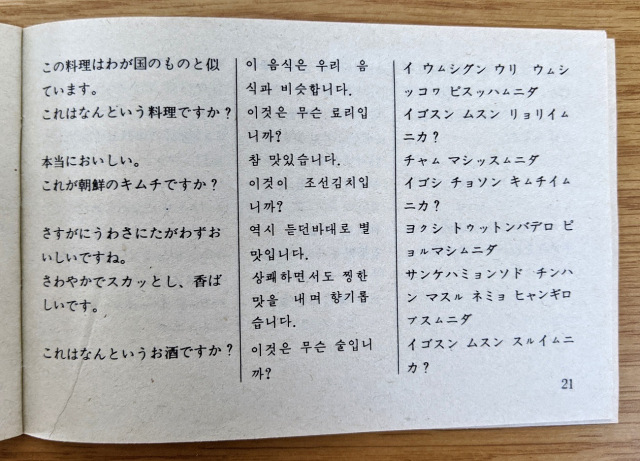 この料理はわが国のものと似
ています。
これはなんという料理ですか？
本当においしい。
これが朝鮮のキムチですか？
さすがにうわさにたがわずお
いしいですね。
さわやかでスカッとし、香ば
しいです。
これはなんというお酒ですか？
이 음식은 우리 음
식과 비슷합니다.
이것은 무슨 료리입
니까?
참 맛있습니다.
이것이 조선김치입
니까?
역시 듣던바대로 별
맛입니다.
상쾌하면서도 찡한
맛을 내며 향기롭
습니다.
이것은 무슨 술입니
까?
イ ウムシグン ウリ ウムシ
ッコヮ ピスッハムニダ
イゴスン ムスン リョリイム
ニカ？
チャム マシッスムニダ
イゴシ チョソン キムチイム
ニカ？
ヨクシ トゥットンバデロ ピ
ョルマシムニダ
サンケハミョンソド チンハ
ン マスル ネミョ ヒャンギロ
プスムニダ
イゴスン ムスン スルイムニ
カ？
21